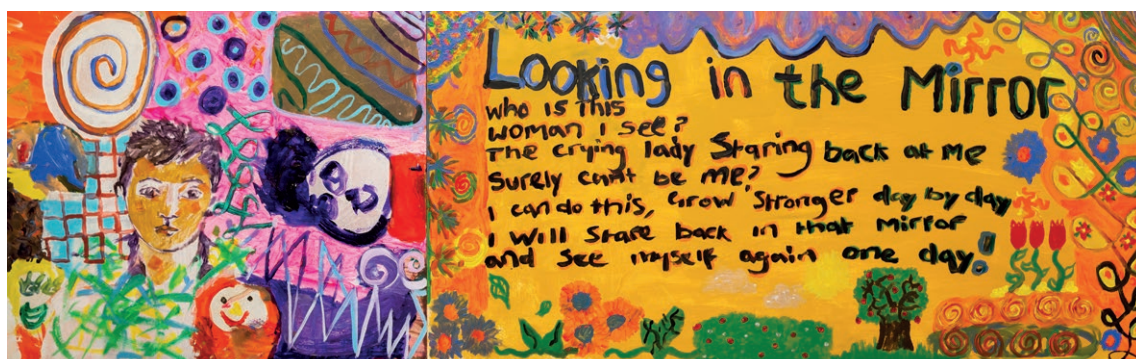 Looking in the Mirror
Who is this
woman I see?
The crying lady Staring back at Me
Surely can't be me?
I can do this, Grow Stronger day by day
I will stare back in that Mirror
and see myself again one day!